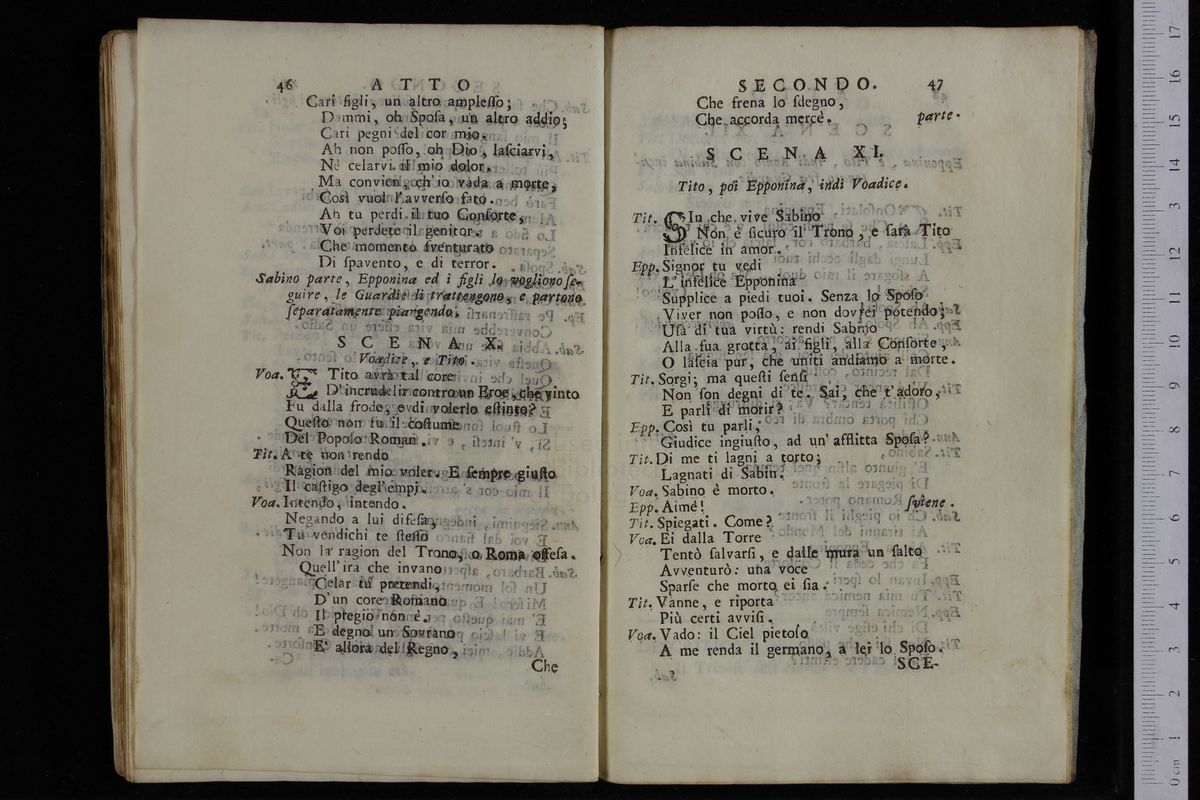 46 ATTO
Cari figli, un altro ampleſſo;
Dammi, oh Spoſa, un altro addio;
Cari pegni del cor mio.
Ah non poſſo, oh Dio, laſciarvi,
Nè celarvi il mio dolor.
Ma convien, ch'io vada a morte,
Così vuol l'avverſo fato.
Ah tu perdi il tuo Conſorte,
Voi perdete il genitor.
Che momento ſventurato
Di ſpavento, e di terror.
Sabino parte, Epponina ed i figli lo vogliono ſe-
guire, le Guardie li trattengono, e partono
ſeparatamente piangendo.
SCENA X.
Voadice, e Tito.
Voa. E Tito avrà tal core
D'incrudelir contro un Eroe, che vinto
Fu dalla frode, e di volerlo eſtinto?
Queſto non fu il coſtume
Del Popolo Roman.
Tit. A te non rendo
Ragion del mio voler. E ſempre giuſto
Il caſtigo degl'empj.
Voa. Intendo, intendo.
Negando a lui difeſa,
Tu vendichi te ſteſſo
Non la ragion del Trono, o Roma offeſa.
Quell'ira che invano
Celar tu pretendi,
D'un core Romano
Il pregio non è.
E degno un Sovrano
E' allora del Regno,
Che
SECONDO. 47
Che frena lo ſdegno,
Che accorda mercè. parte.
SCENA XI.
Tito, poi Epponina, indi Voadice.
Tit. SIn che vive Sabino
Non è ſicuro il Trono, e ſarà Tito
Infelice in amor.
Epp. Signor tu vedi
L'infelice Epponina
Supplice a piedi tuoi. Senza lo Spoſo
Viver non poſſo, e non dovrei potendo;
Uſa di tua virtù: rendi Sabino
Alla ſua grotta, ai figli, alla Conſorte,
O laſcia pur, che uniti andiamo a morte.
Tit. Sorgi; ma queſti ſenſi
Non ſon degni di te. Sai, che t'adoro,
E parli di morir?
Epp. Così tu parli,
Giudice ingiuſto, ad un' afflitta Spoſa?
Tit. Di me ti lagni a torto;
Lagnati di Sabin.
Voa. Sabino è morto.
Epp. Aimè! ſviene.
Tit. Spiegati. Come?
Voa. Ei dalla Torre
Tentò ſalvarſi, e dalle mura un ſalto
Avventurò: una voce
Sparſe che morto ei ſia.
Tit. Vanne, e riporta
Più certi avviſi.
Voa. Vado: il Ciel pietoſo
A me renda il germano, a lei lo Spoſo.
SCE-